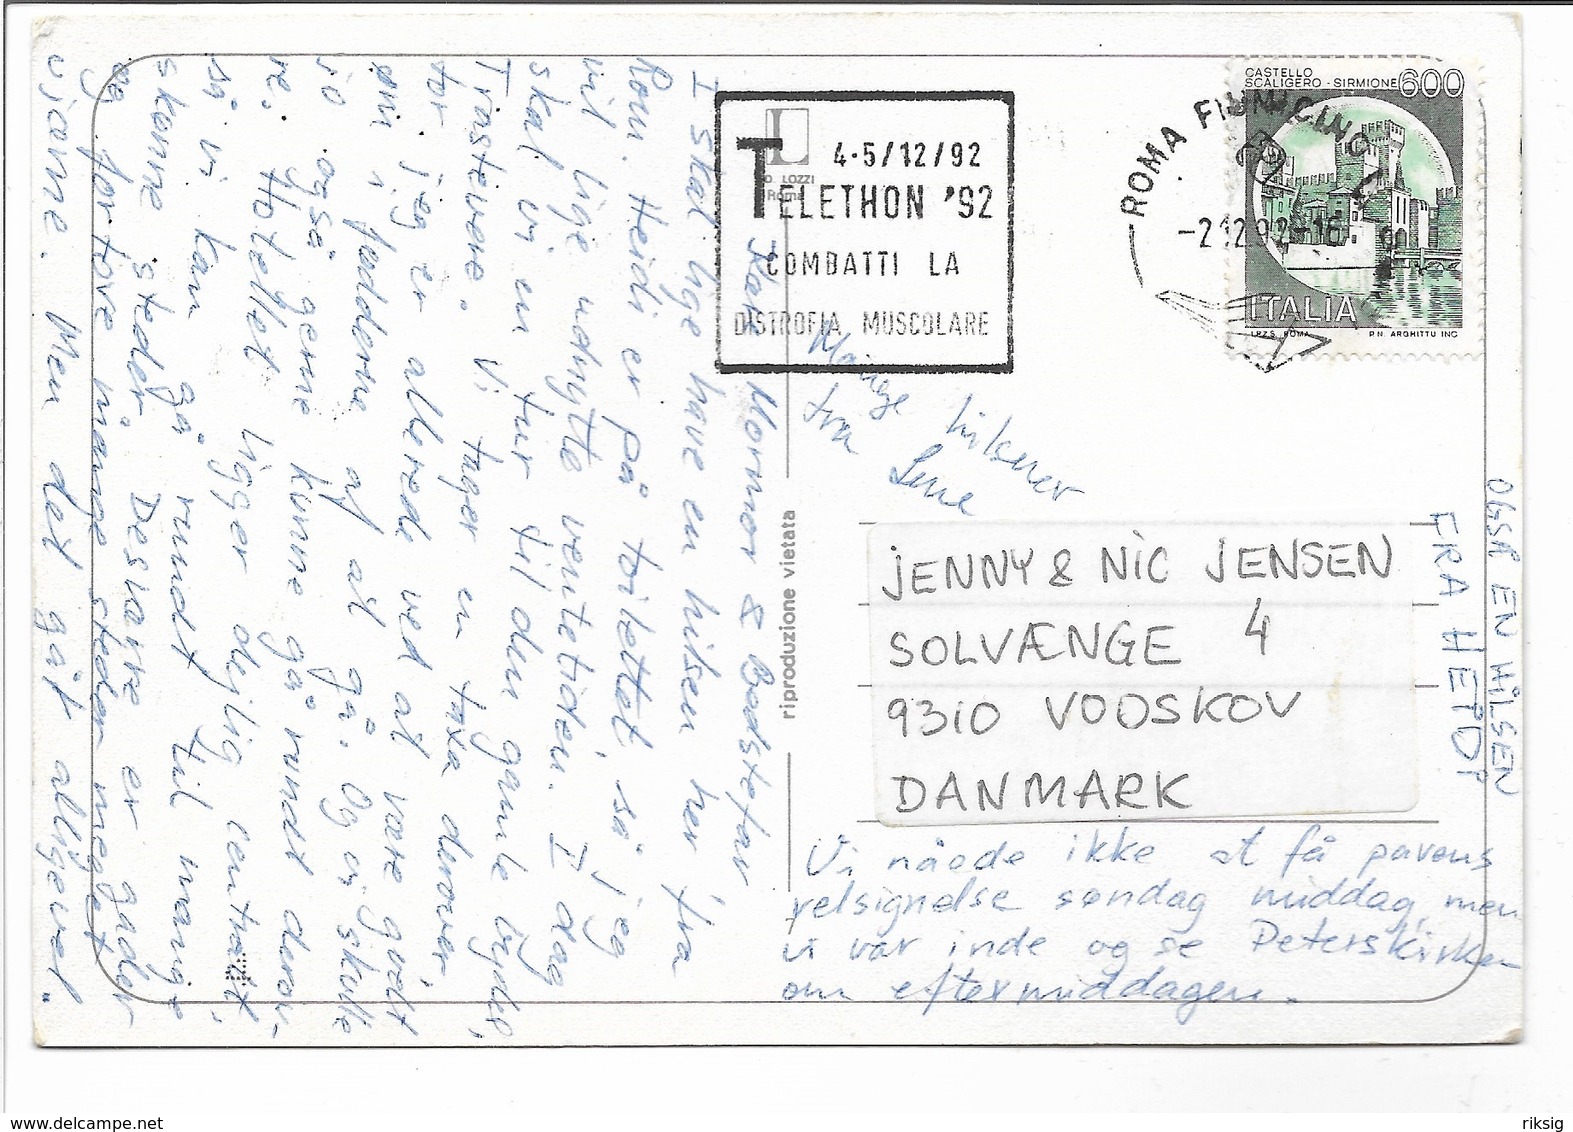 Kære Mormor & Bedstefar
I skal lige have en hilsen her fra
Rom. Heidi er på toilettet, så jeg
vil lige udnytte ventetiden. I dag
skal vi en tur til den gamle bydel,
Trastevere. Vi tager en taxa derover
for jeg er allerede ved at være godt
øm i fødderne af at gå. Og vi skulle
jo også gerne kunne gå rundt derov-
re. Hotellet ligger dejlig centralt
så vi kan gå rundt til mange
skønne steder. Desværre er gader
og fortove mange steder meget
ujævne. Men det går alligevel.
Mange hilsener
fra Lene
OGSÅ EN HILSEN
FRA HEIDI
Vi nåede ikke at få pavens
velsignelse søndag middag, men
vi var inde og se Peterskirken
om eftermiddagen.
JENNY & NIC JENSEN
SOLVÆNGE 4
9310 VODSKOV
DANMARK
riproduzione vietata
D. LOZZI
Roma
4-5/12/92
TELETHON '92
COMBATTI LA
DISTROFIA MUSCOLARE
ROMA FIUMICINO
-2.12.92-16
CASTELLO
SCALIGERO - SIRMIONE 600
ITALIA
I.P.Z.S. ROMA P.N. ARGHITTU INC.
www.delcampe.net
riksig